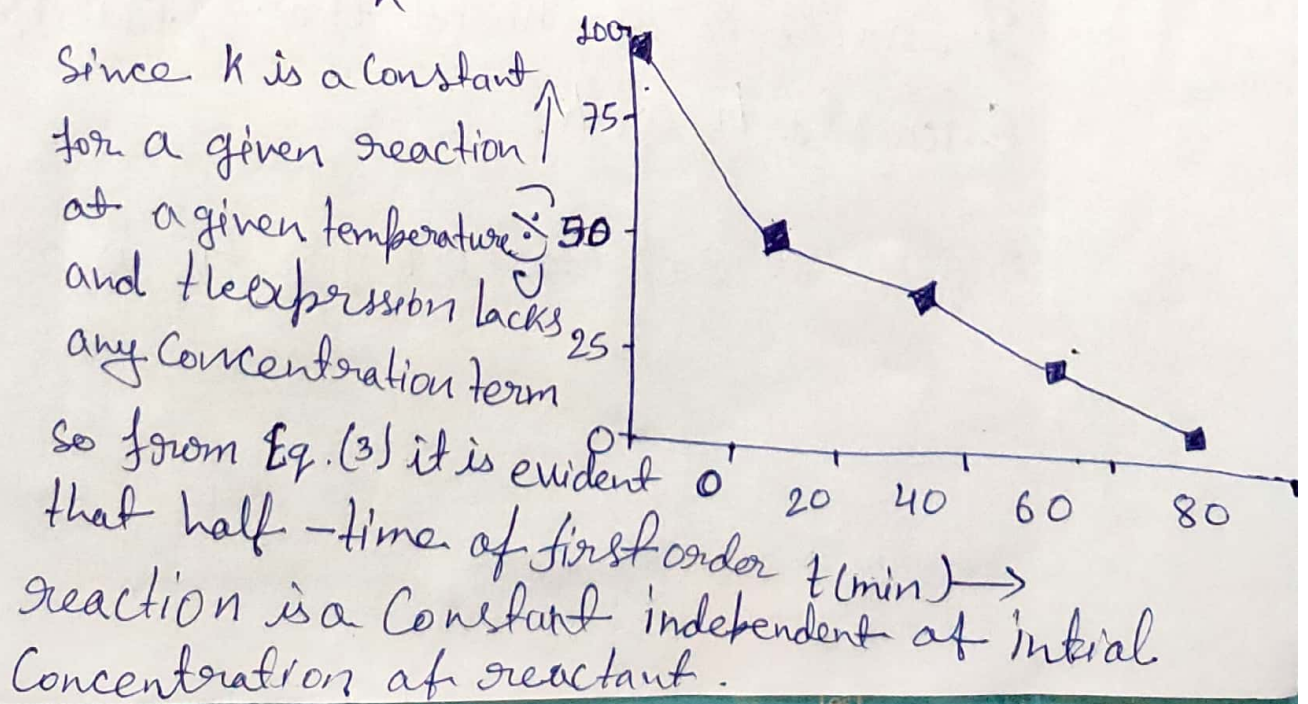 Since K is a Constant
for a given reaction
at a given temperature
and the exprssion lacks
any Concentration term
so from Eq.(3) it is evident
that half-time of first order
reaction is a Constant independent of intial
Concentration of reactant.
100
75
50
25
0
0 20 40 60 80
t(min)